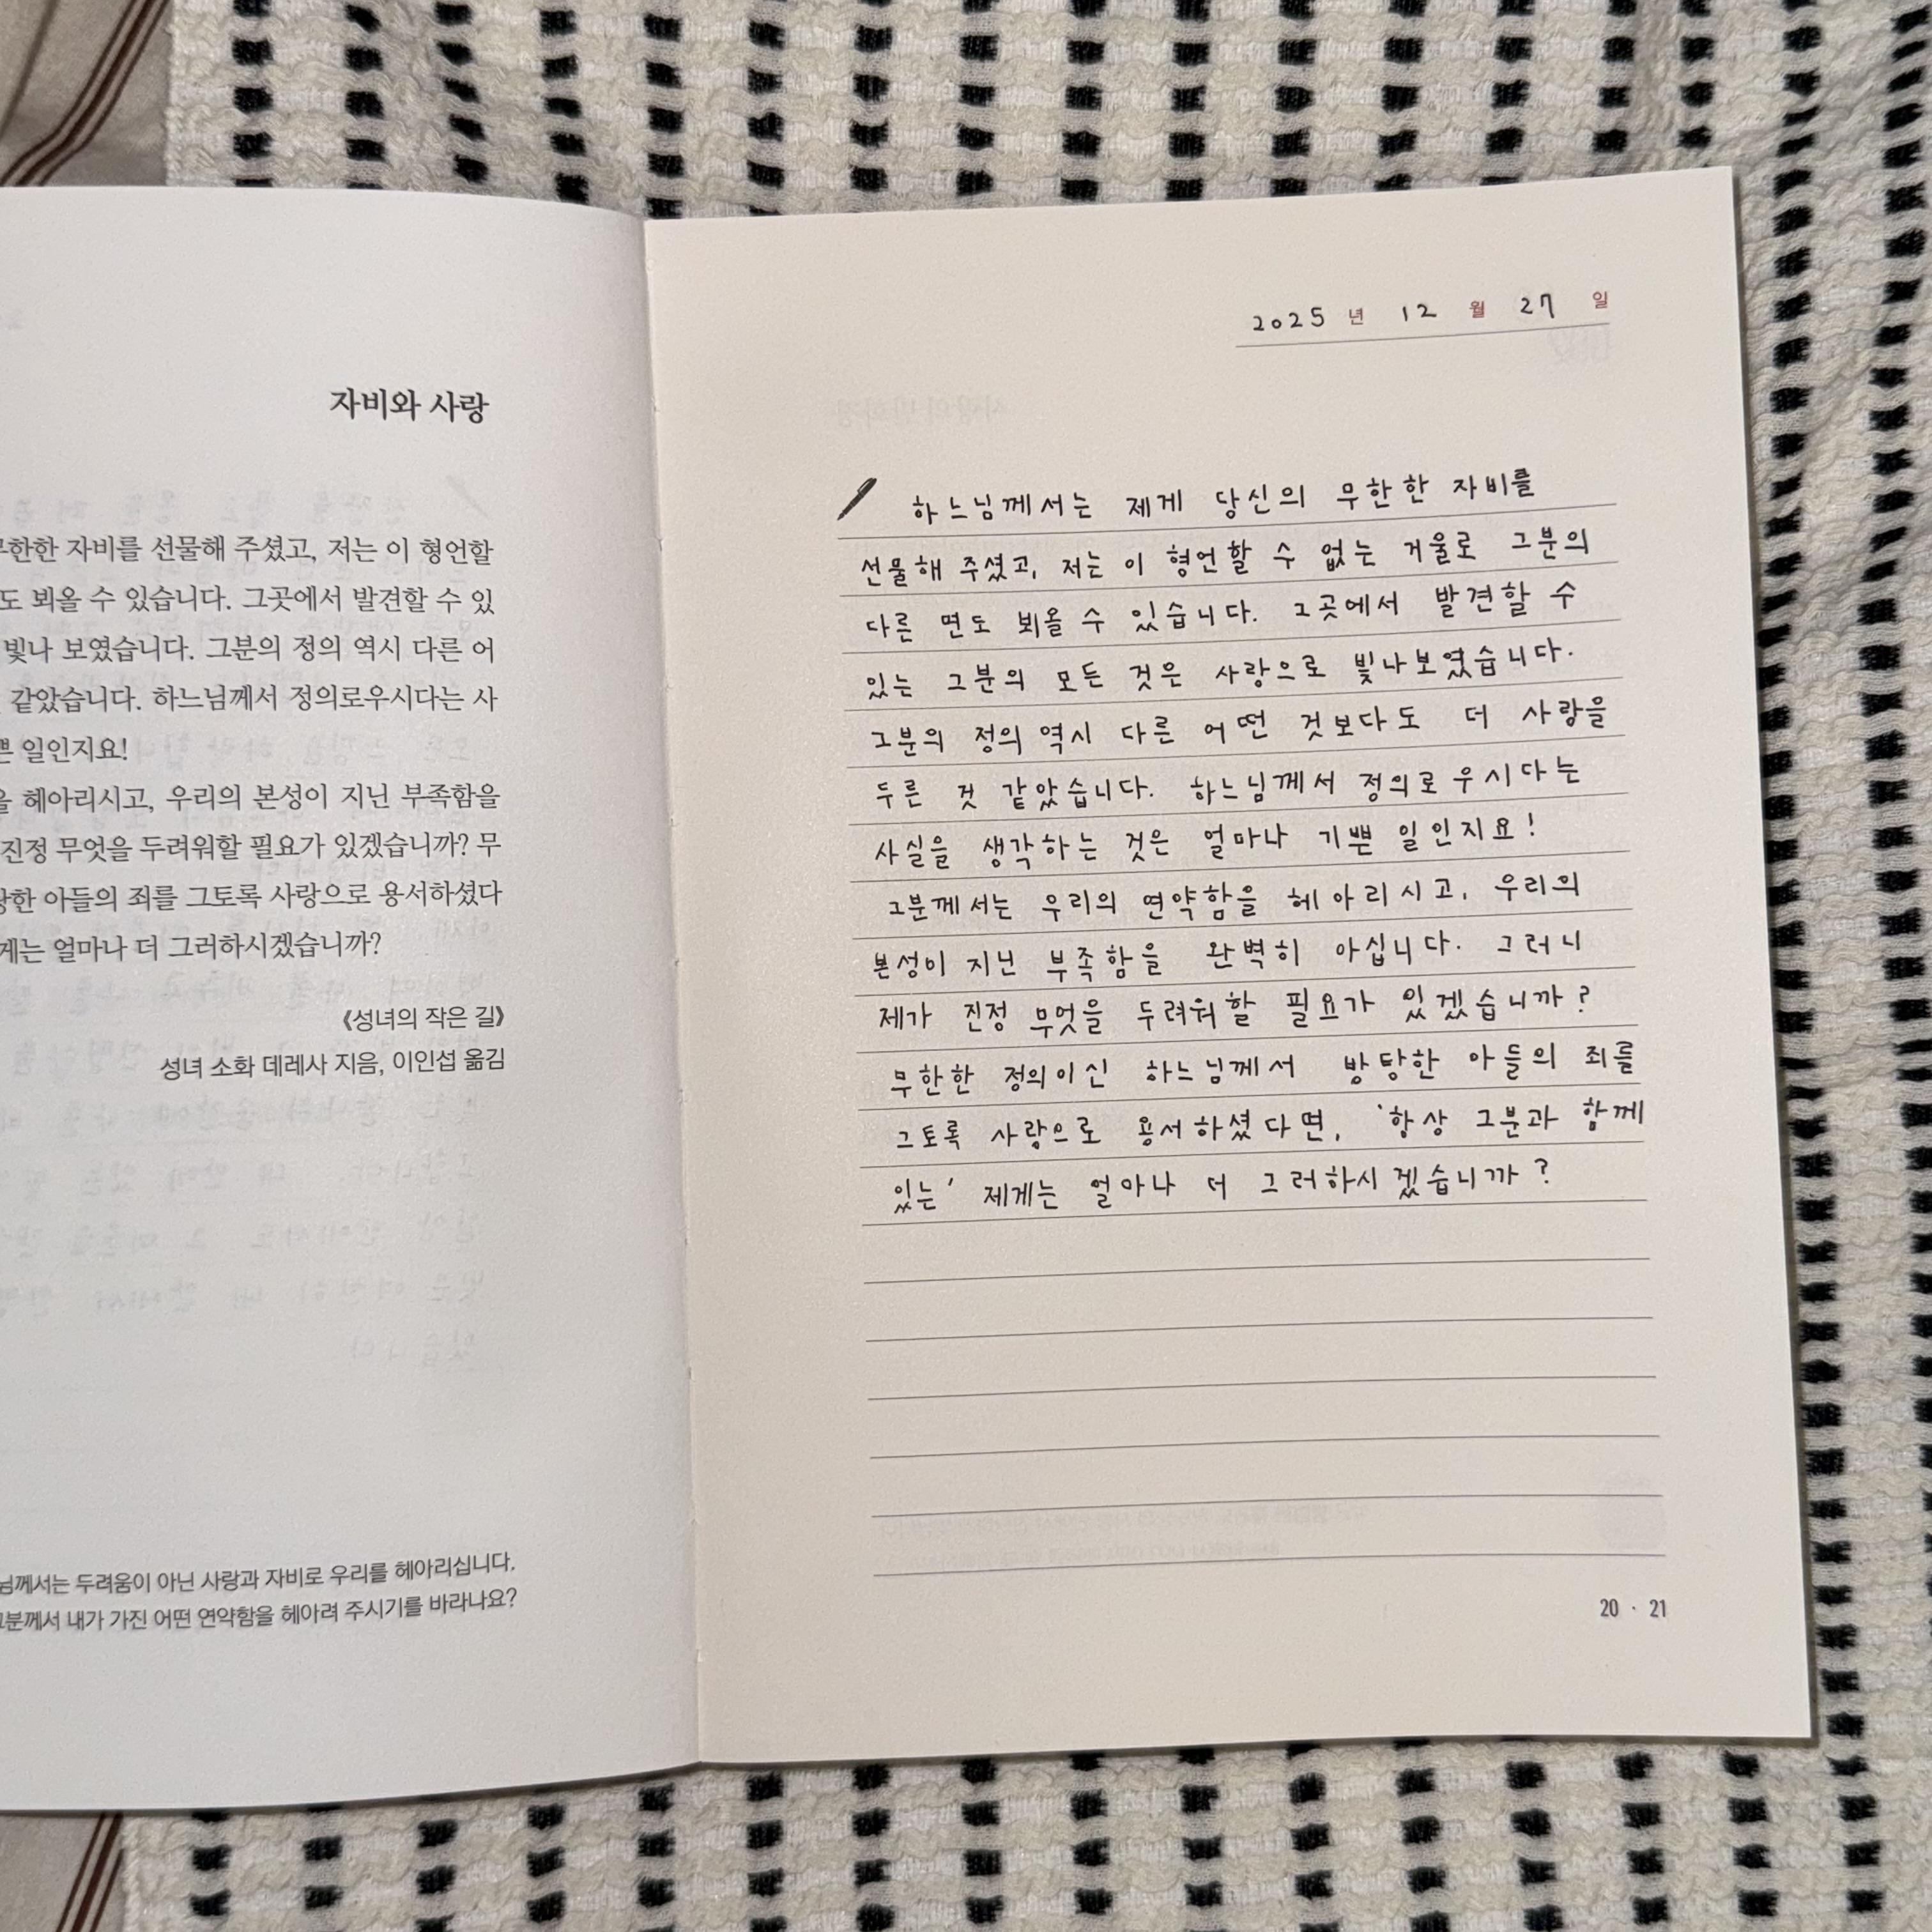 자비와 사랑
무한한 자비를 선물해 주셨고, 저는 이 형언할
도 뵈올 수 있습니다. 그곳에서 발견할 수 있
빛나 보였습니다. 그분의 정의 역시 다른 어
같았습니다. 하느님께서 정의로우시다는 사
쁜 일인지요!
을 헤아리시고, 우리의 본성이 지닌 부족함을
진정 무엇을 두려워할 필요가 있겠습니까? 무
탕한 아들의 죄를 그토록 사랑으로 용서하셨다
게는 얼마나 더 그러하시겠습니까?
《성녀의 작은 길》
성녀 소화 데레사 지음, 이인섭 옮김
님께서는 두려움이 아닌 사랑과 자비로 우리를 헤아리십니다.
그분께서 내가 가진 어떤 연약함을 헤아려 주시기를 바라나요?
2025 년 12 월 27 일
하느님께서는 제게 당신의 무한한 자비를
선물해 주셨고, 저는 이 형언할 수 없는 거울로 그분의
다른 면도 뵈올 수 있습니다. 그곳에서 발견할 수
있는 그분의 모든 것은 사랑으로 빛나보였습니다.
그분의 정의 역시 다른 어떤 것보다도 더 사랑을
두른 것 같았습니다. 하느님께서 정의로우시다는
사실을 생각하는 것은 얼마나 기쁜 일인지요!
그분께서는 우리의 연약함을 헤아리시고, 우리의
본성이 지닌 부족함을 완벽히 아십니다. 그러니
제가 진정 무엇을 두려워할 필요가 있겠습니까?
무한한 정의이신 하느님께서 방탕한 아들의 죄를
그토록 사랑으로 용서하셨다면, '항상 그분과 함께
있는' 제게는 얼마나 더 그러하시겠습니까?
20 · 21